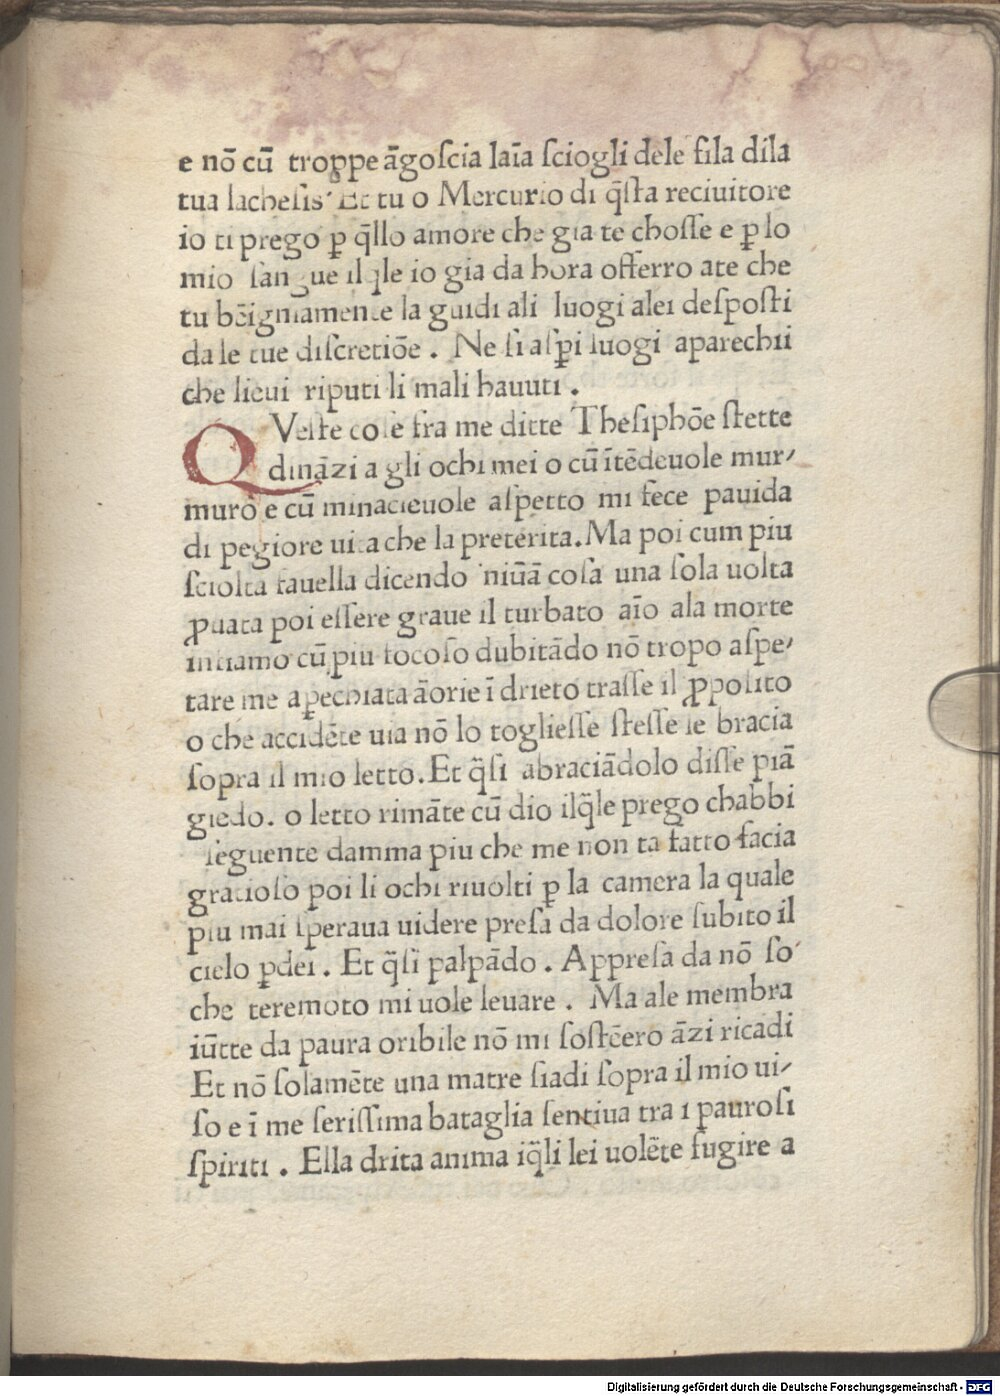 e nō cū troppe āgoſcia laīa ſciogli dele fila dila
tua lacheſis Et tu o Mercurio di q̄ſta reciuitore
io ti prego ꝑ q̄llo amore che gia te choſſe e ꝑ lo
mio ſangue il q̄le io gia da hora offerro ate che
tu bēigniamente la guidi ali luogi alei deſpoſti
da le tue diſcretiōe . Ne ſi aſꝑi luogi aparechii
che lieui riputi li mali hauuti .
QVeſte coſe fra me ditte Theſiphōe ſtette
dināzi a gli ochi mei o cū ītēdeuole mur-
muro e cū minacieuole aſpetto mi fece pauida
di pegiore uita che la preterita. Ma poi cum piu
ſciolta fauella dicendo niūā coſa una ſola uolta
ꝓuata poi eſſere graue il turbato aīo ala morte
infiamo cū piu focoſo dubitādo nō tropo aſpe-
tare me aꝑechiata āorie ī drieto traſſe il ꝓpoſito
o che accidēte uia nō lo toglieſſe ſteſſe le bracia
ſopra il mio letto. Et q̄ſi abraciādolo diſſe piā
giedo. o letto rimāte cū dio ilq̄le prego chabbi
ſeguente damma piu che me non ta fatto facia
gratioſo poi li ochi riuolti ꝑ la camera la quale
piu mai ſperaua uidere preſa da dolore ſubito il
cielo ꝑdei . Et q̄ſi palpādo . Appreſa da nō ſo
che teremoto mi uole leuare . Ma ale membra
iūtte da paura oribile nō mi ſoſtēero āzi ricadi
Et nō ſolamēte una matre ſiadi ſopra il mio ui-
ſo e ī me ſeriſſima bataglia ſentiua tra i pauroſi
ſpiriti . Ella drita anima iq̄li lei uolēte fugire a
Digitalisierung gefördert durch die Deutsche Forschungsgemeinschaft - DFG